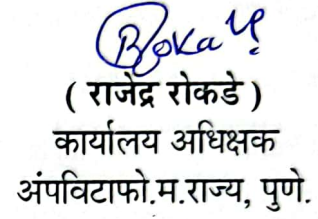 ( राजेंद्र रोकडे )
कार्यालय अधिक्षक
अंपविटाफो.म.राज्य, पुणे.